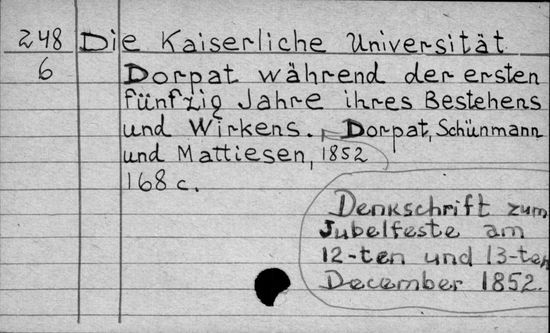 248 Die Kaiserliche Universität
6 Dorpat während der ersten
fünfzig Jahre ihres Bestehens
und Wirkens. Dorpat, Schünmann
und Mattiesen, 1852
168 c.
Denkschrift zum
Jubelfeste am
12-ten und 13-ten
December 1852.